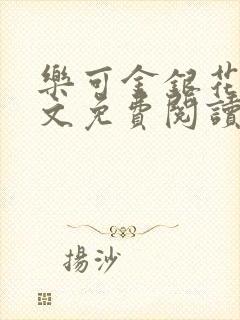 樂可金銀花
文免費閱讀
揚沙